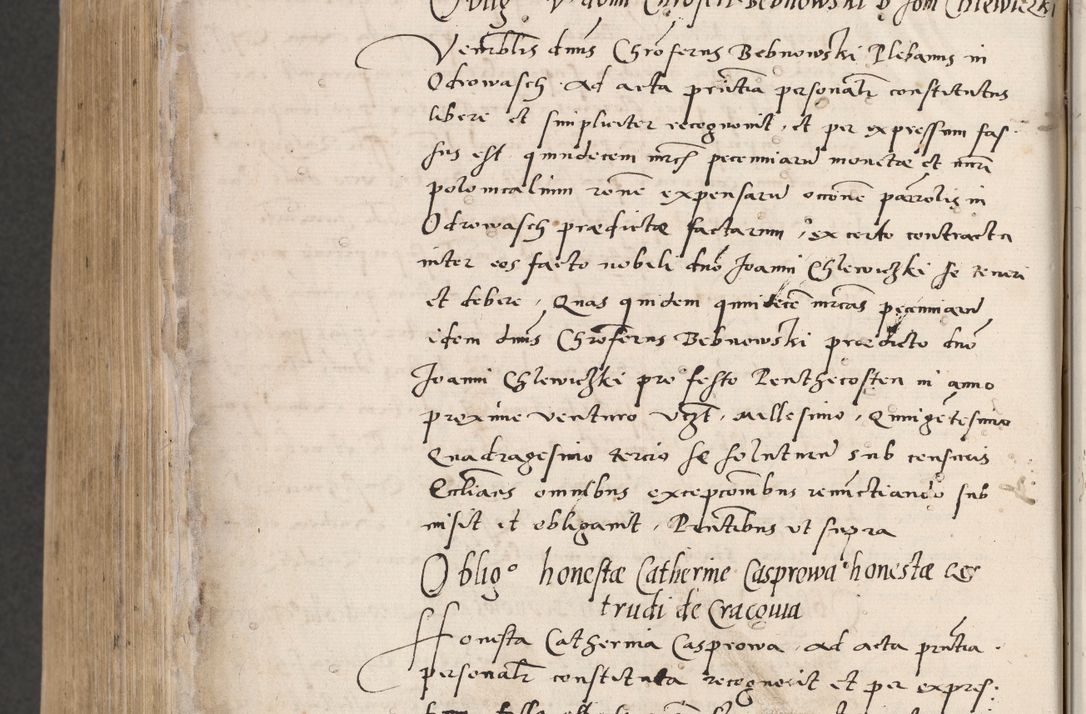 Oblig. V. domi Chrosferi Bebnowski D Joni Chlewiczki
Venerblis dns Chroferus Bebnowski Plebanus in
Odrowasch. Ad acta prntia personalr constitutus
libere et simpliciter recognovit, et per expressum fas-
sus est quindecem mrcs pecuniaru monetæ et nuri
polonicalium rone expensaru occone parrolis in
Odrowasch prædictæ factarum, ex certo contractu
inter eos facto nobili dno Joanni Chlewiczki se teneri
et debere, Quas quidem quindece mrcas pecuniaru
idem dns Chroferus Bebnowski prædicto dno
Joanni Chlewiczki pro festo Penthecosten in anno
proxime venturo vizt. Millesimo, Quingetesimo
Quadragesimo tercio se soluturu sub censuris
Ecclians omnibus excepconibus renunctiando sub
misit et obligavit, Pntibus ut supra
Obligo honestæ Catherine Casprowa honestæ Ger
trudi de Cracovia
Honesta Catherina Casprowa. ad acta prntia.
personalr constituta recognovit et per expres-